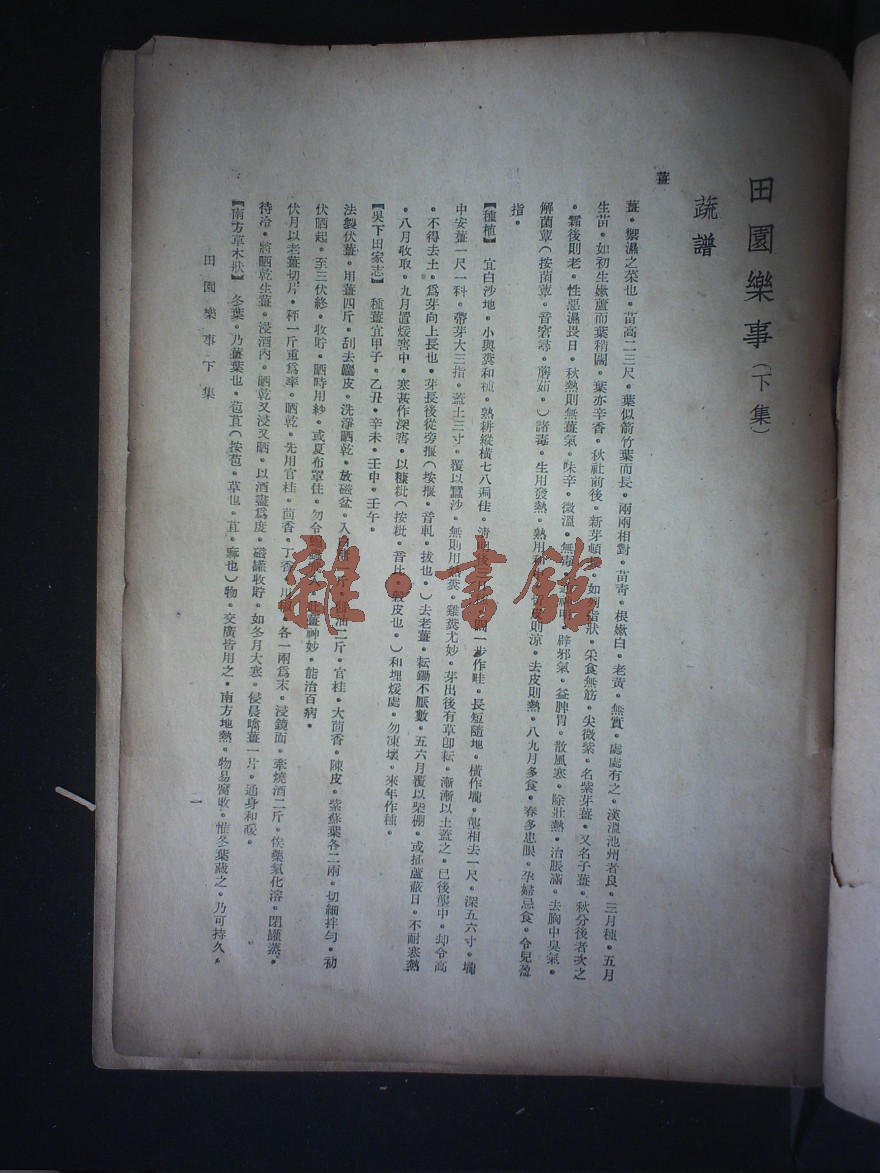 田園樂事(下集)
蔬譜
薑
薑・禦濕之菜也・苗高二三尺・葉似箭竹葉而長・兩兩相對・苗靑・根嫩白・老黃・無實・處處有之・漢溫池州者良・三月種・五月
生苗・如初生嫩蘆而葉稍闊・葉亦辛香・秋社前後・新芽頓・如列指狀・采食無筋・尖微紫・名紫芽薑・又名子薑・秋分後者次之
・霜後則老・性惡濕畏日・秋熱則無薑氣・味辛・微溫・無毒・通神明・辟邪氣・益脾胃・散風寒・除壯熱・治脹滿・去胸中臭氣・
解菌蕈(按南蕈・音窘尋・蘑茹・)諸毒・生用發熱・熟用・皮則涼・去皮則熱・八九月多食・春多患眼・孕婦忌食・令兒盈
指・
【種植】 宜白沙地・小與糞和種・熟耕縱橫七八遍佳・淸明後三・闊一步作畦・長短隨地・橫作壠・壟相去一尺・深五六寸・壠
中安薑一尺一科・帶芽大三指・蓋土三寸・覆以蠶沙・無則用熟糞・雞糞尤妙・芽出後有草卽耘・漸漸以土蓋之・已後壟中・却令高
・不得去土・爲芽向上長也・芽長後從旁揠(按揠・音軋・拔也・)去老薑・耘鋤不厭數・五六月覆以柴棚・或插蘆蔽日・不耐寒熱
・八月收取・九月置煖窖中・寒甚作深窖・以糠粃(按粃・音比・穀皮也・)和埋煖處・勿凍壞・來年作種・
【吳下田家志】 種薑宜甲子・乙丑・辛未・壬申・壬午・
法製伏薑・用薑四斤・刮去麤皮・洗淨晒乾・放磁盆・入白糖一斤・油二斤・官桂・大茴香・陳皮・紫蘇葉各二兩・切細拌勻・初
伏晒起・至三伏終・收貯・晒時用紗・或夏布罩住・勿令・此薑神妙・能治百病・
伏月以老薑切片・秤一斤重爲率・晒乾・先用官桂・茴香・丁香・川椒・各一兩爲末・浸鏡面・牽燒酒二斤・俟藥氣化溶・閉罐蒸・
待冷・將晒乾生薑・浸酒內・晒乾又浸又晒・以酒盡爲度・磁罐收貯・如冬月大寒・侵晨噙薑一片・通身和暖・
【南方草木狀】 冬葉・乃薑葉也・苞苴(按苞・草也・苴・麻也)物・交廣皆用之・南方地熱・物易腐敗・惟冬葉藏之・乃可持久・
田園樂事下集
一
雜・書館